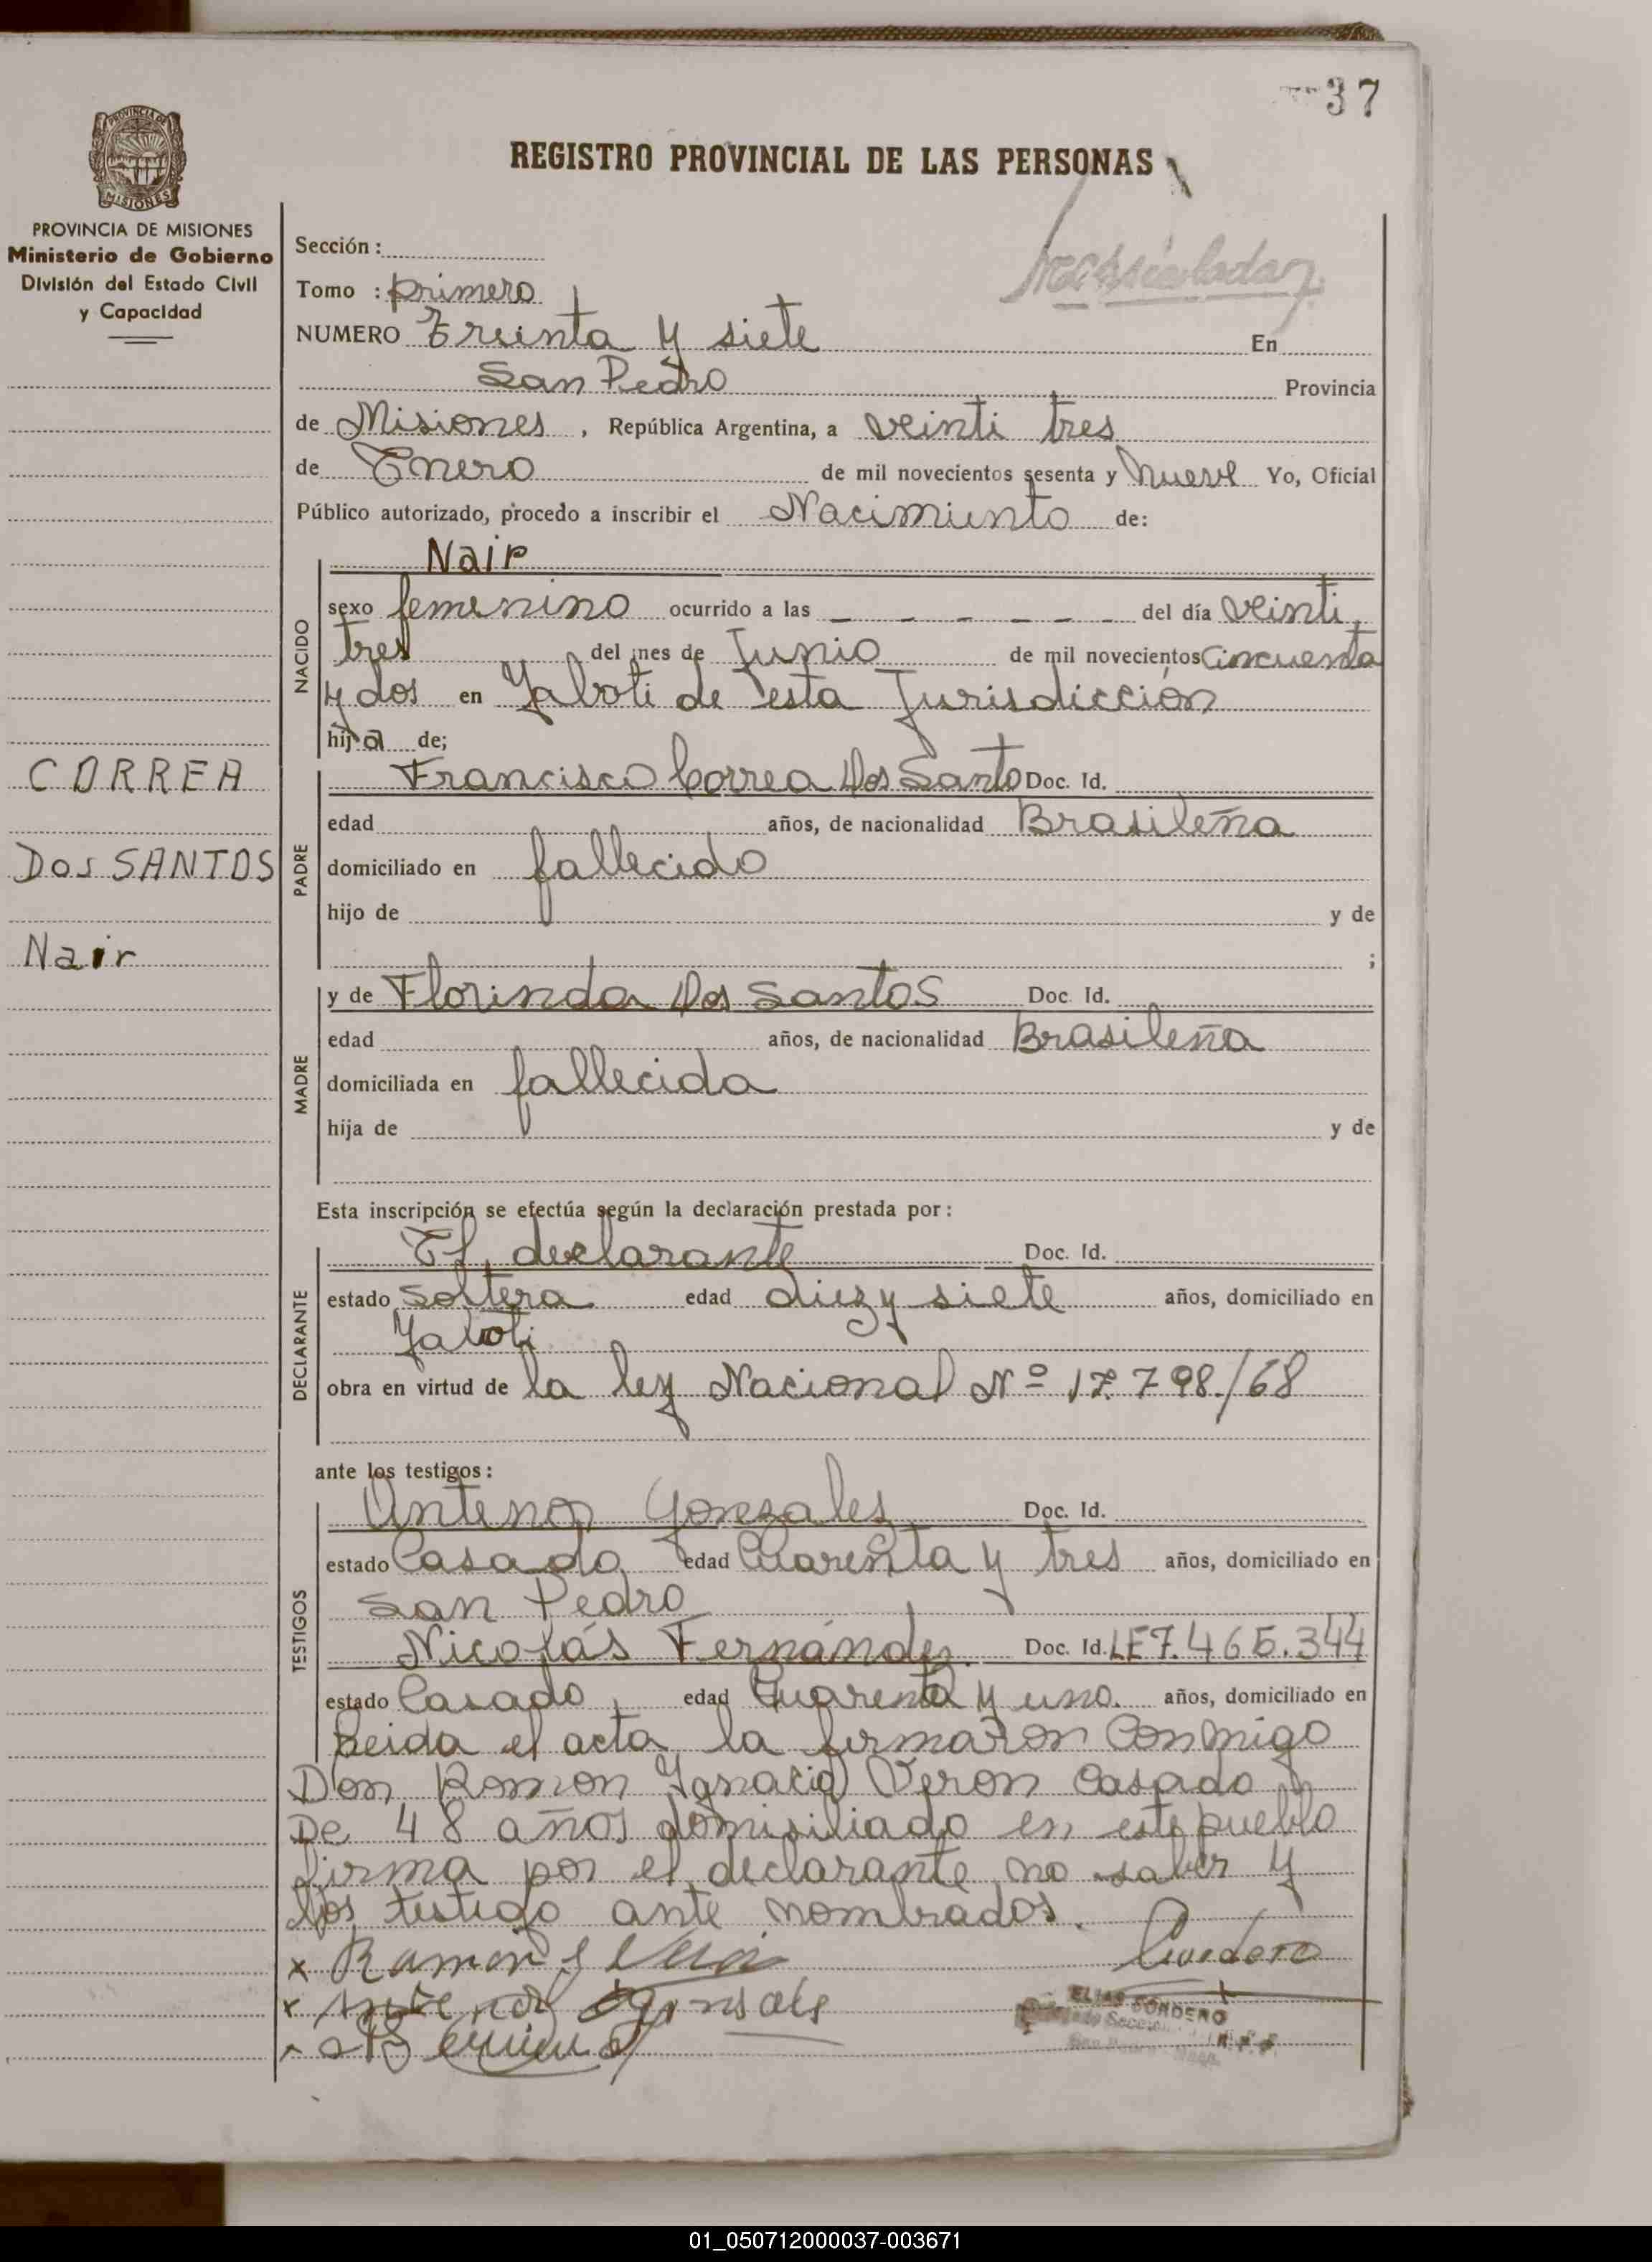 37
REGISTRO PROVINCIAL DE LAS PERSONAS
PROVINCIA DE MISIONES
Ministerio de Gobierno
División del Estado Civil
y Capacidad
Sección:
Tomo : primero
NUMERO Treinta y siete En
San Pedro Provincia
de Misiones, República Argentina, a veinti tres
de Enero de mil novecientos sesenta y nueve Yo, Oficial
Público autorizado, procedo a inscribir el Nacimiento de:
Nair
NACIDO
sexo femenino ocurrido a las - - - - - - del día veinti
tres del mes de Junio de mil novecientos cincuenta
y dos en Yaboti de esta Jurisdicción
hija de;
CORREA
Dos SANTOS
Nair
PADRE
Francisco Correa Dos Santo Doc. Id.
edad años, de nacionalidad Brasileña
domiciliado en fallecido
hijo de y de
;
MADRE
y de Florinda Dos Santos Doc. Id.
edad años, de nacionalidad Brasileña
domiciliada en fallecida
hija de y de
Esta inscripción se efectúa según la declaración prestada por:
DECLARANTE
El declarante Doc. Id.
estado Soltera edad diez y siete años, domiciliado en
Yaboti
obra en virtud de la ley Nacional Nº 17.798./68
ante los testigos:
TESTIGOS
Antenor Gonzales Doc. Id.
estado Casado edad Cuarenta y tres años, domiciliado en
San Pedro
Nicolás Fernández. Doc. Id. LE7.465.344
estado Casado, edad Cuarenta y uno. años, domiciliado en
Leida el acta la firmaron Conmigo
Don Ramon Ygnacio Veron Casado
De 48 años domisiliado en este pueblo
firma por el declarante no saber y
los testigo ante nombrados.
x Ramon
x Antenor Gonsales
ELIAS CONDERO
01_050712000037-003671